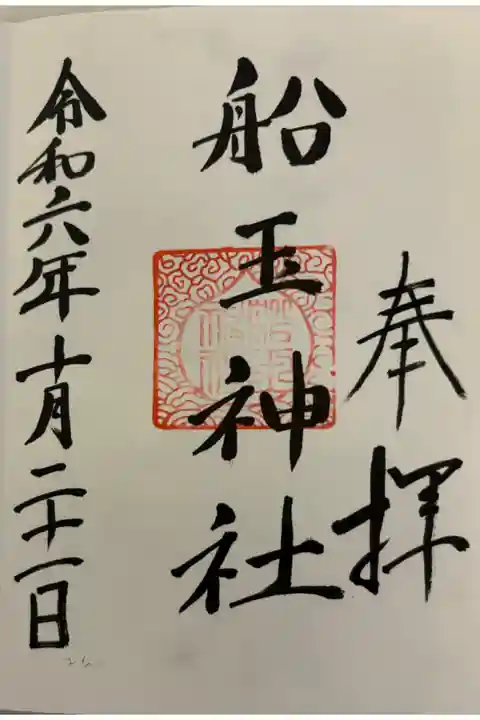 奉拝
船玉神社
令和六年十月二十一日